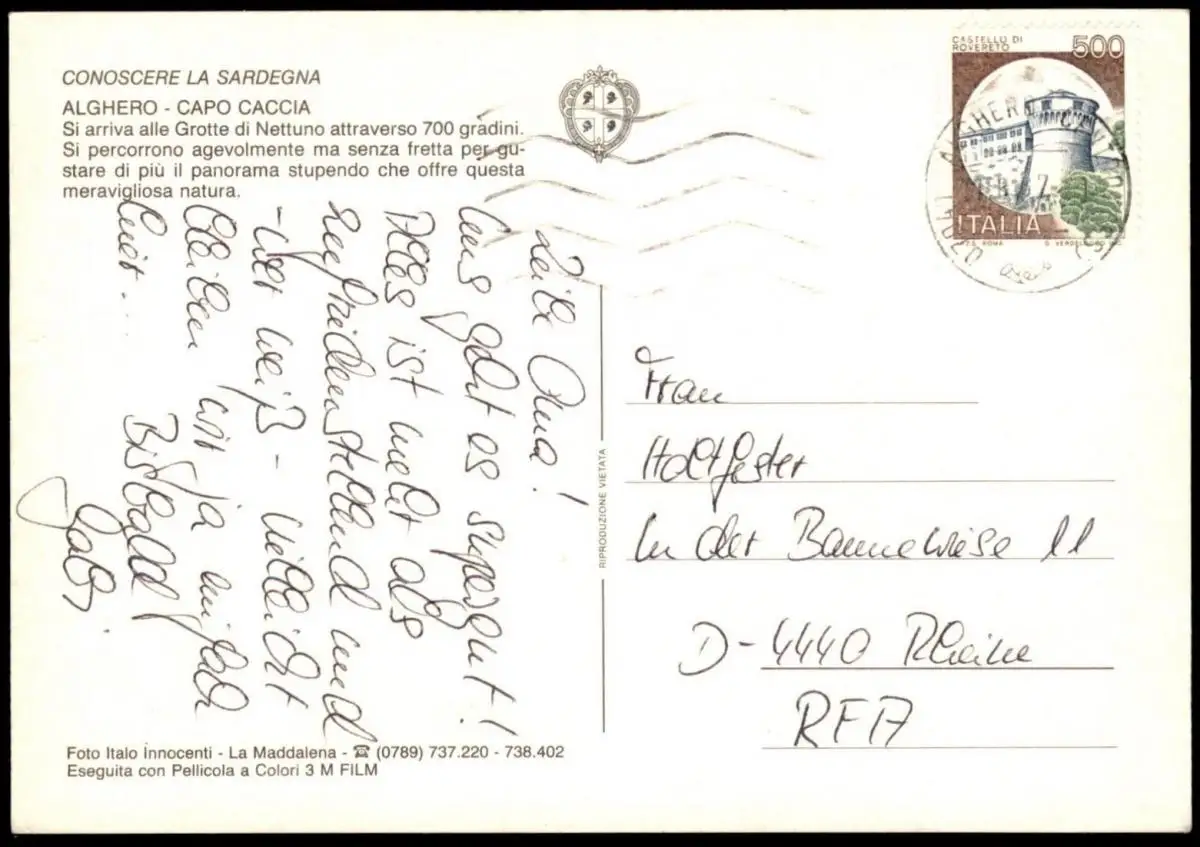 CONOSCERE LA SARDEGNA
ALGHERO - CAPO CACCIA
Si arriva alle Grotte di Nettuno attraverso 700 gradini.
Si percorrono agevolmente ma senza fretta per gu-
stare di più il panorama stupendo che offre questa
meravigliosa natura.
CASTELLO DI
ROVERETO
500
ITALIA
ALGHERO
Liebe Oma!
Uns geht es supergut!
Alles ist mehr als
zufriedenstellend und
- wer weiß - vielleicht
bleiben wir ja einfach
hier...
Bis bald
Gaby
RIPRODUZIONE VIETATA
Frau
Holtfester
In der Bannewiese 11
D-4440 Rheine
RFA
Foto Italo Innocenti - La Maddalena - ☎ (0789) 737.220 - 738.402
Eseguita con Pellicola a Colori 3 M FILM